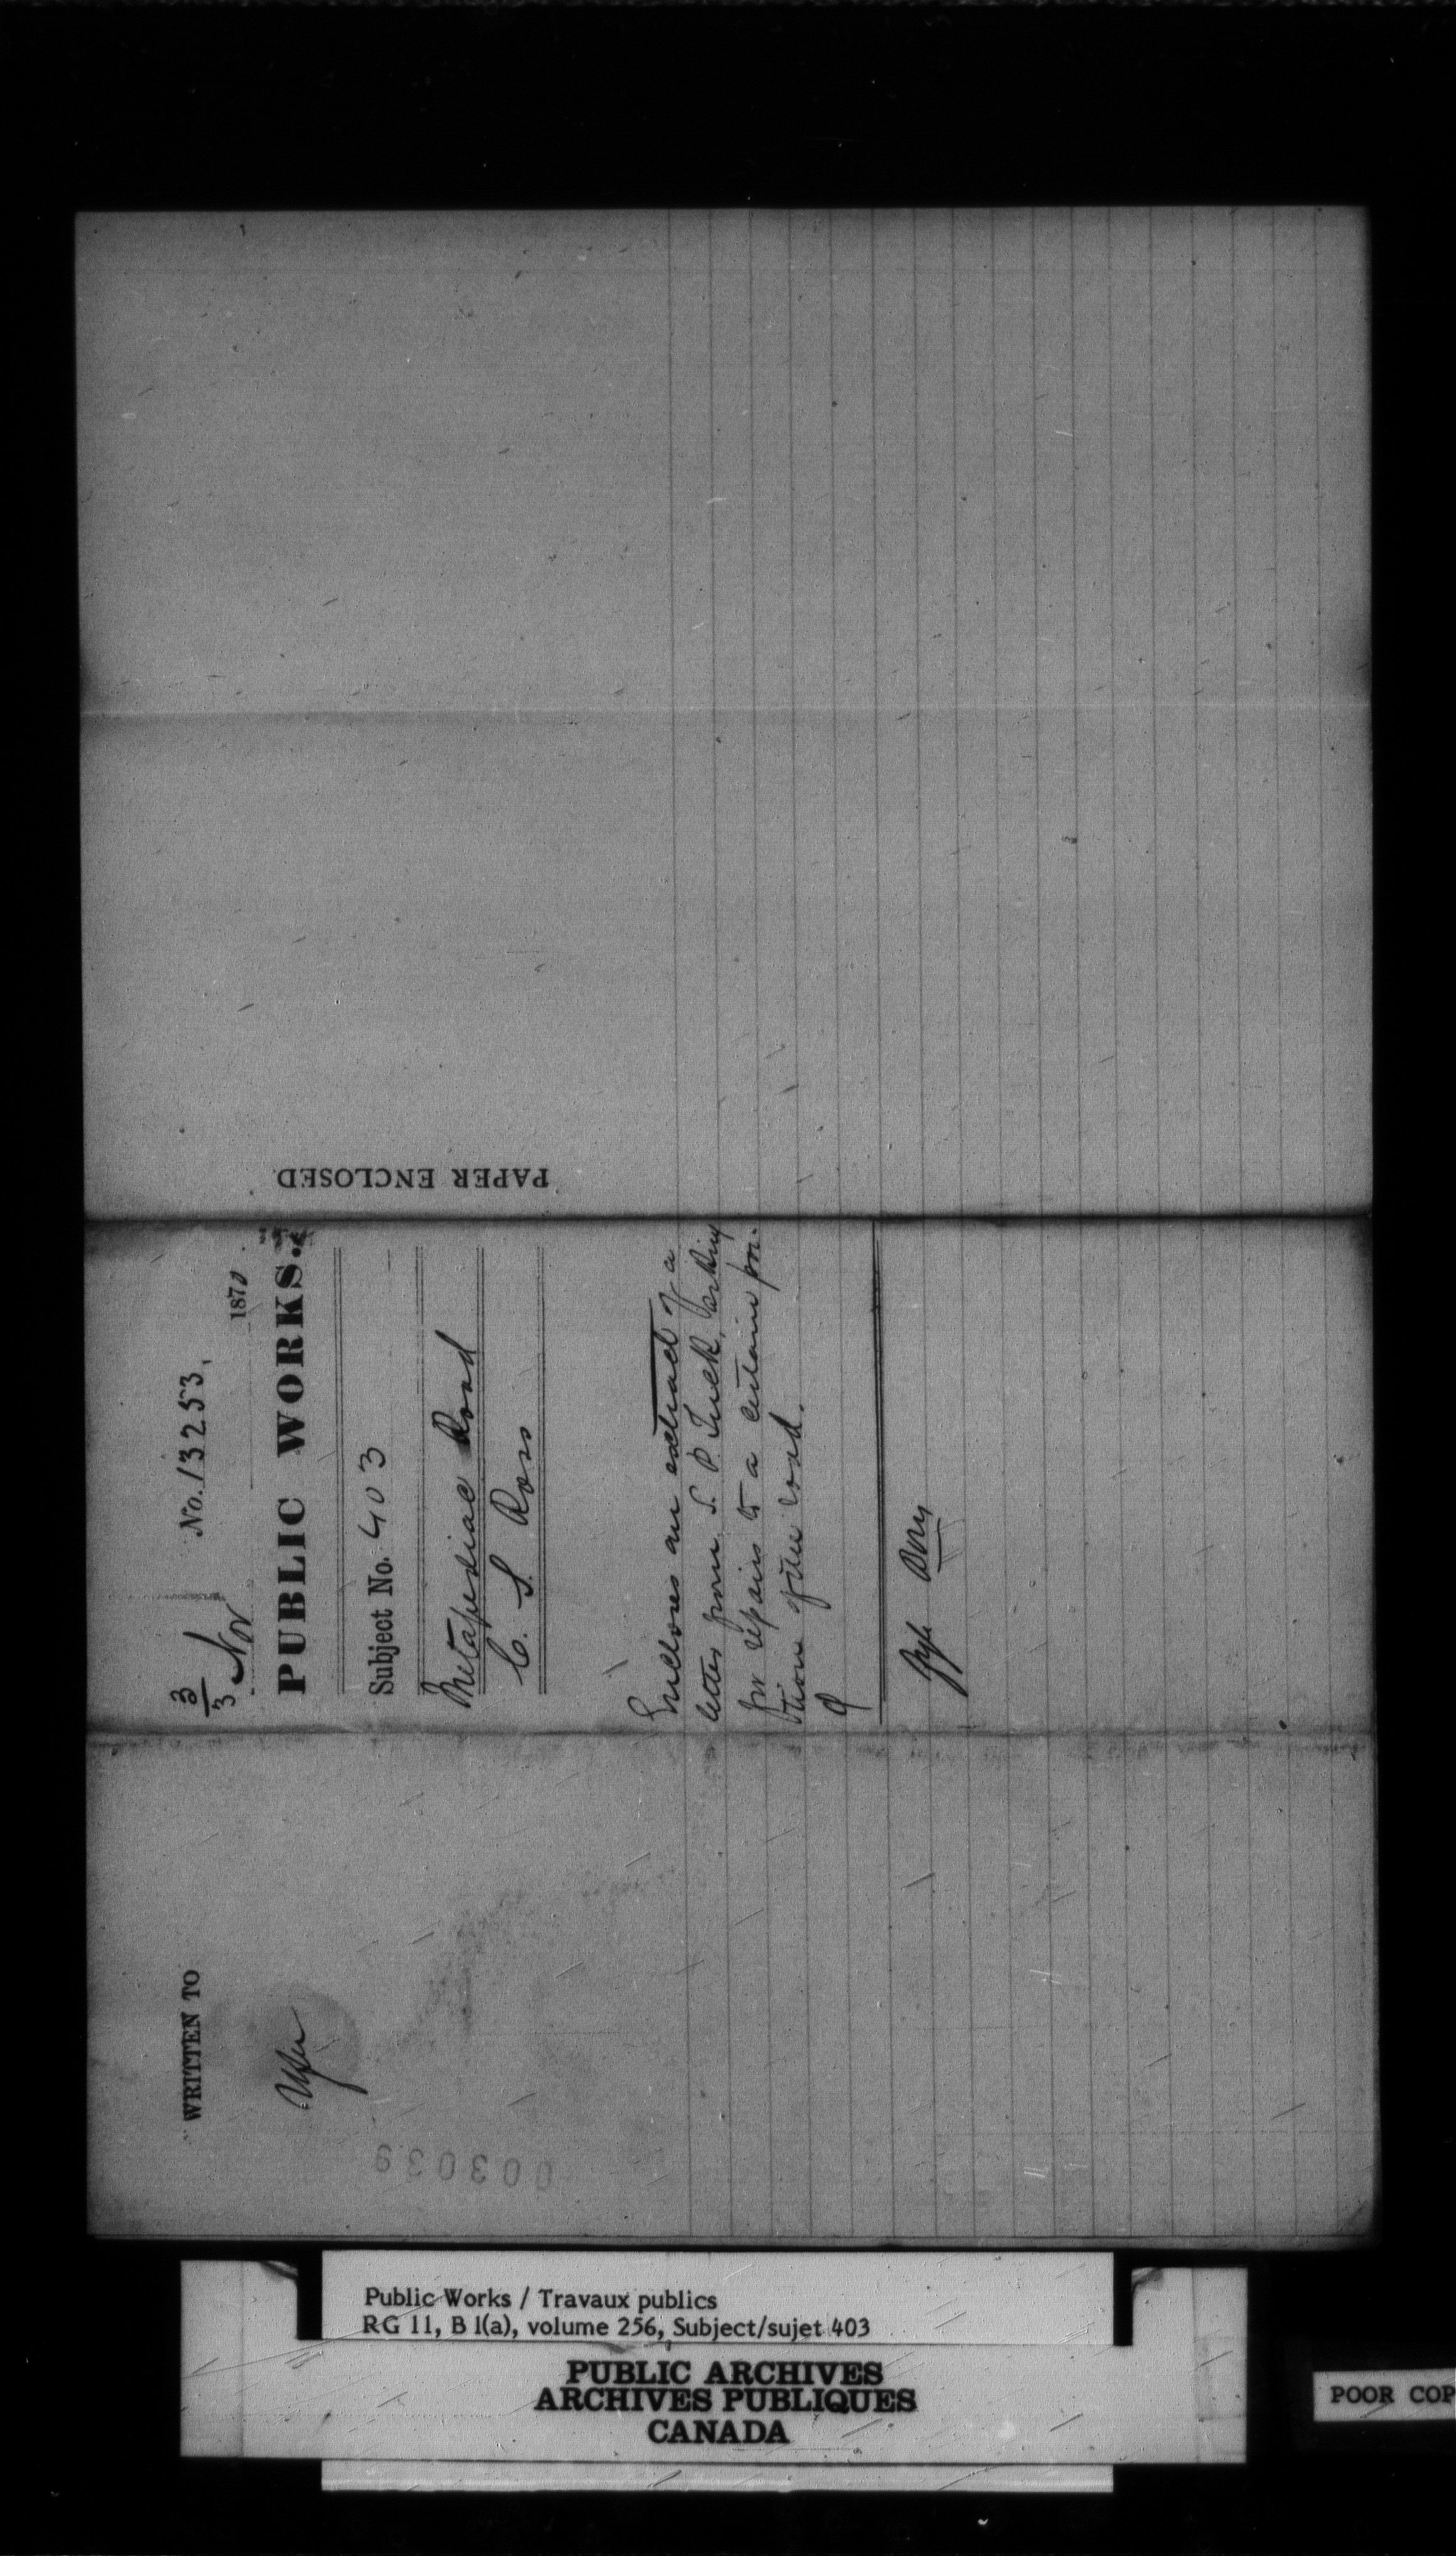 PAPER ENCLOSED
No. 13253.
3/3 Nov 1870
PUBLIC WORKS.
Subject No. 403
Metapediac Road
C. S. Ross
Encloses an extract of a
letter from S. P. Tuck, asking
for repairs to a certain por-
tion of the road.
WRITTEN TO
003039
Public Works / Travaux publics
RG 11, B 1(a), volume 256, Subject/sujet 403
PUBLIC ARCHIVES
ARCHIVES PUBLIQUES
CANADA
POOR COP